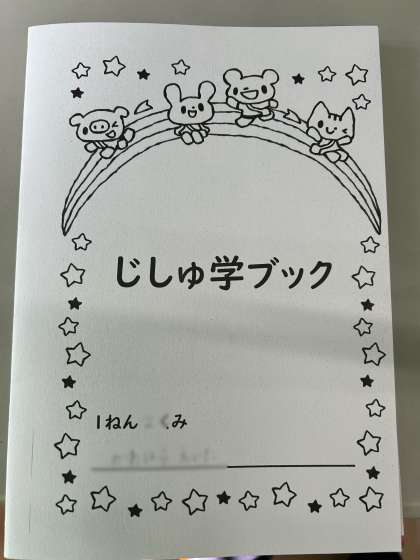 じしゅ学ブック
1ねん くみ